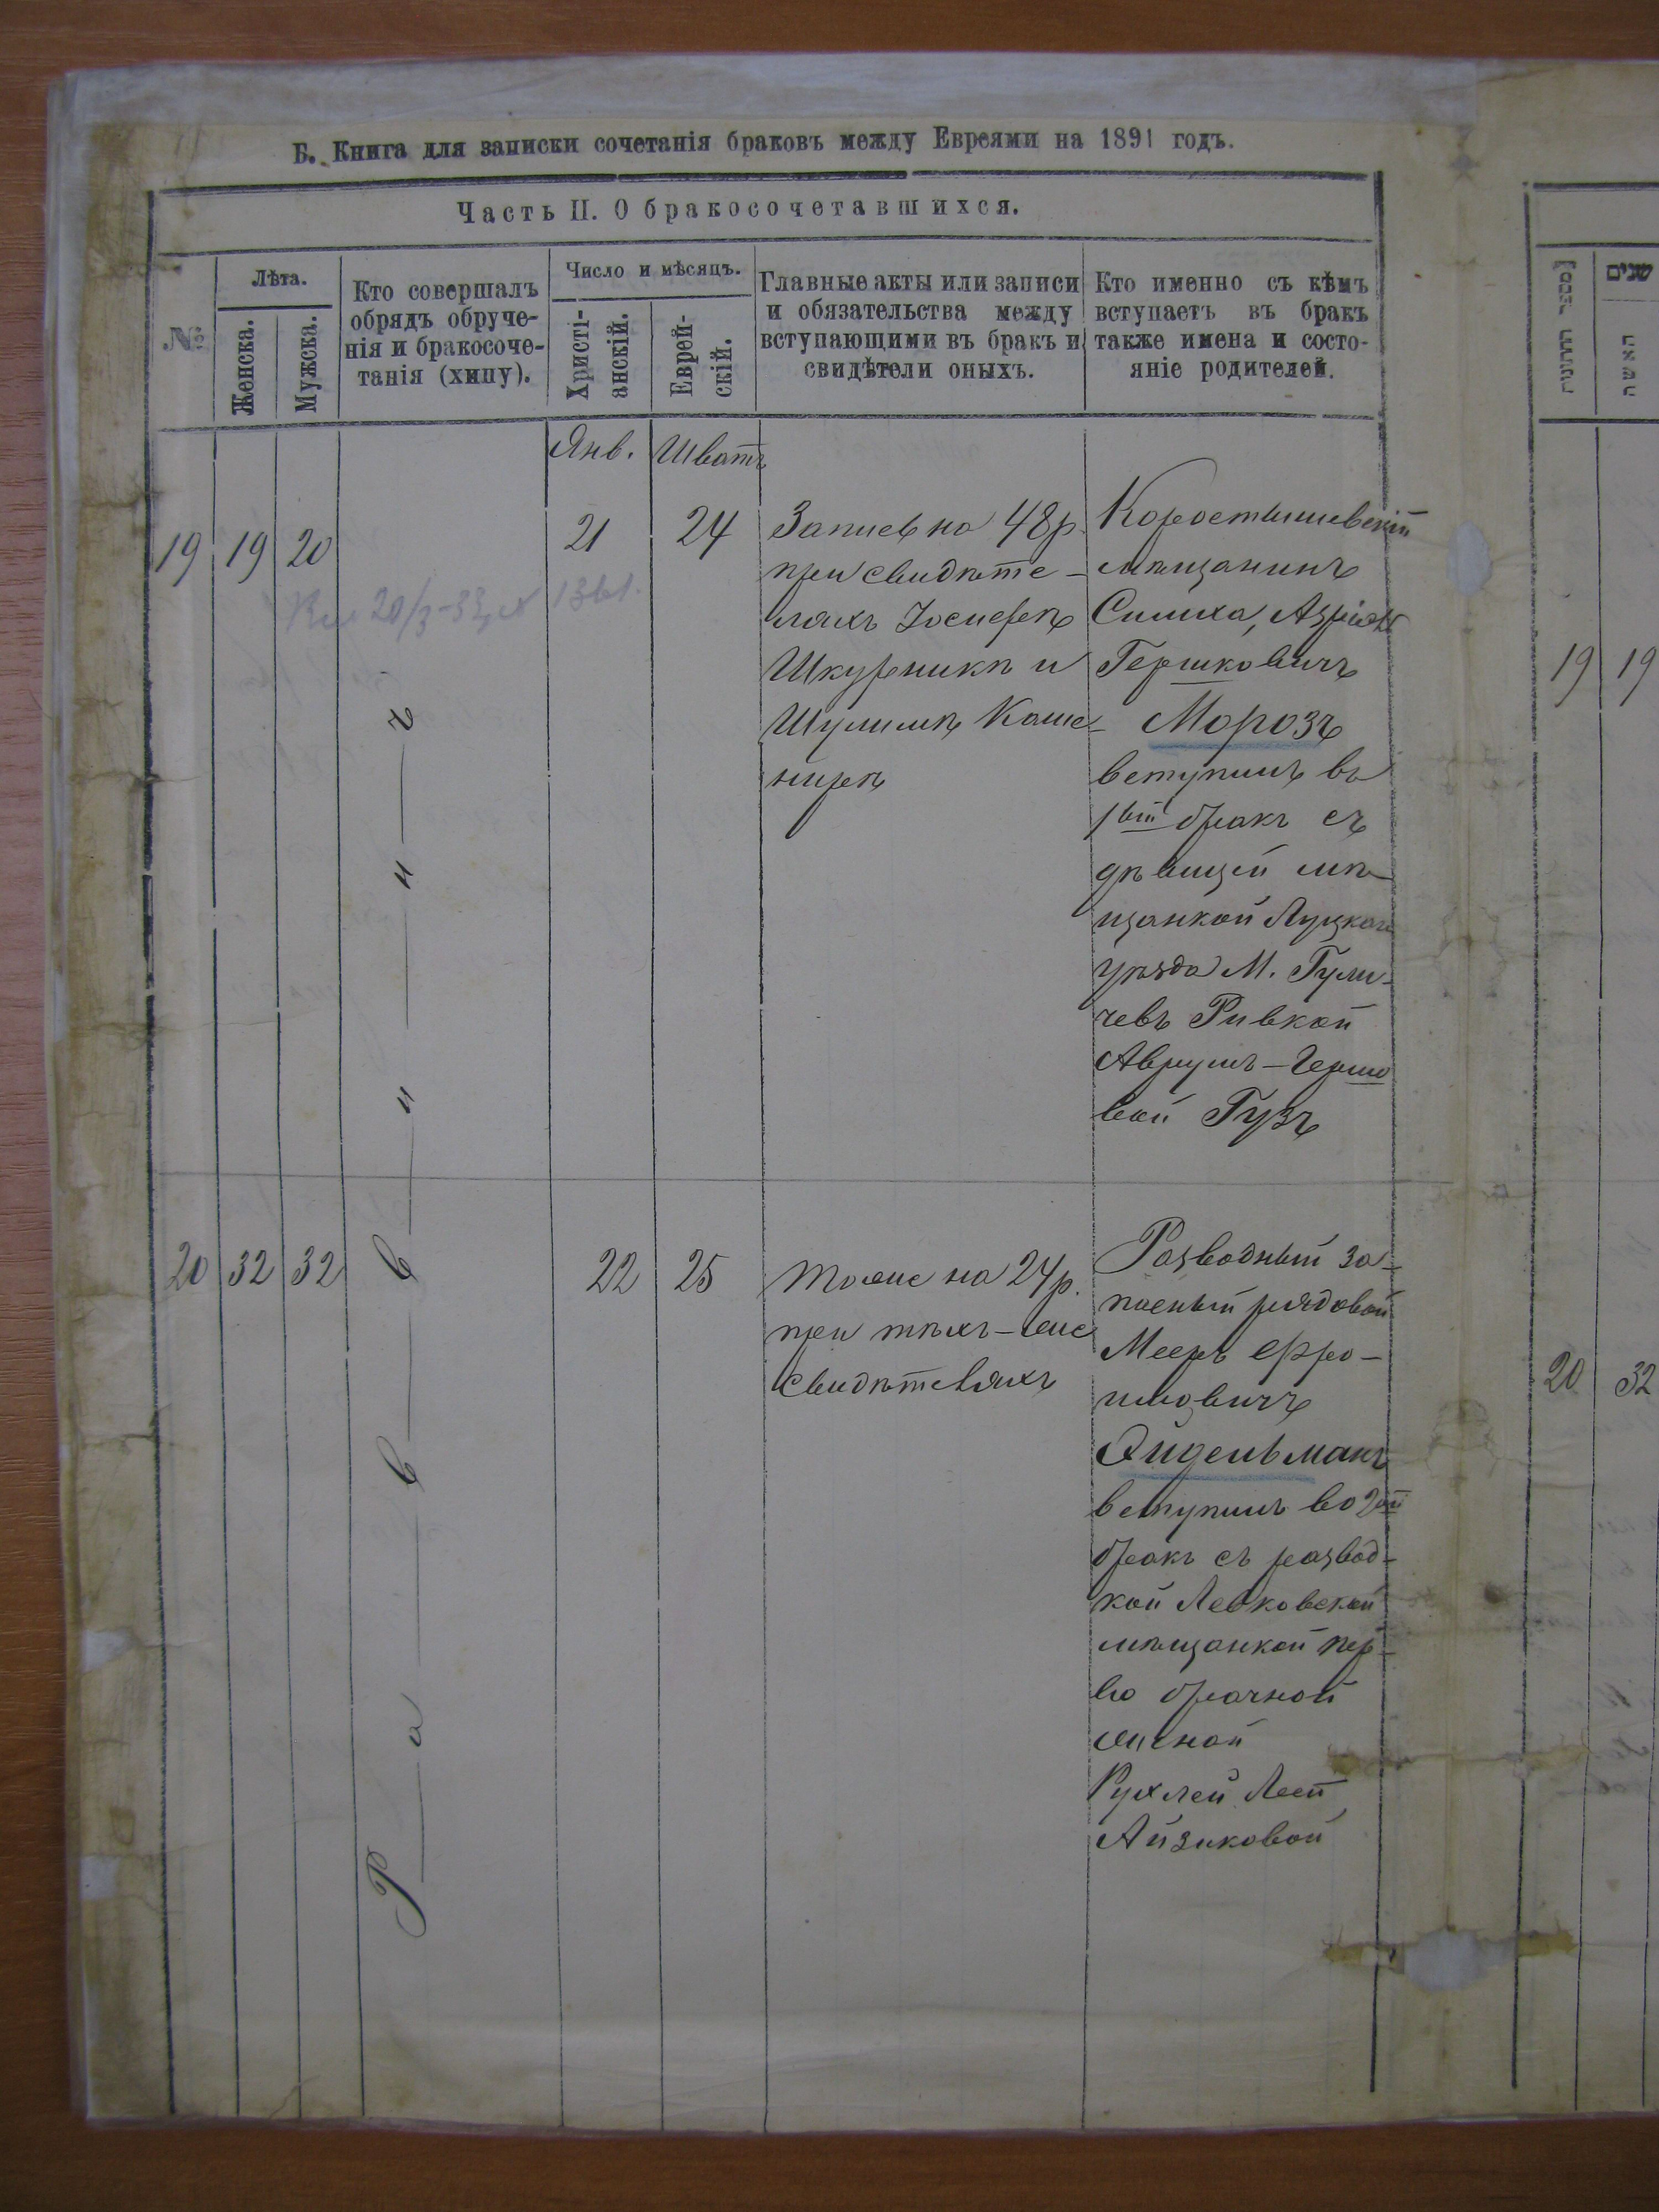 Б. Книга для записки сочетанія браковъ между Евреями на 1891 годъ.
Часть II. О бракосочетавшихся.
№
Лѣта.
Женска.
Мужска.
Кто совершалъ
обрядъ обруче-
нія и бракосоче-
танія (хипу).
Число и мѣсяцъ.
Христі-
анскій.
Еврей-
скій.
Главные акты или записи
и обязательства между
вступающими въ бракъ и
свидѣтели оныхъ.
Кто именно съ кѣмъ
вступаетъ въ бракъ
также имена и состо-
яніе родителей.
Янв. Шватъ
19 19 20
21 24
Запись на 48 р.
при свидѣте-
ляхъ Іосифѣ
Шкурникѣ и
Шулимѣ Каше-
нирѣ
Коростышевскій
мѣщанинъ
Симха, Азріель
Гершковичъ
Морозъ
вступилъ въ
1вый бракъ съ
дѣвицей мѣ-
щанкой Луцкаго
уѣзда М.
Ривкой
Аврумъ-Герш
вой Гузъ
Раввинъ
20 32 32
22 25
Тоже на 24 р.
при тѣхъ-же
свидѣтеляхъ
Разводный за-
пасный рядовой
Мееръ Фро-
имовичъ
Эйдельманъ
вступилъ во 2ой
бракъ съ развод-
кой
мѣщанкой пер-
во брачной
женой
Рухлей Леей
Айзиковой
שנים
האשה
19 19
20 32